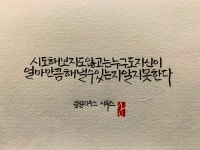 시도해보지도않고는누구도자신이
얼마만큼해낼수있는지알지못한다
푸블릴리우스 시루스